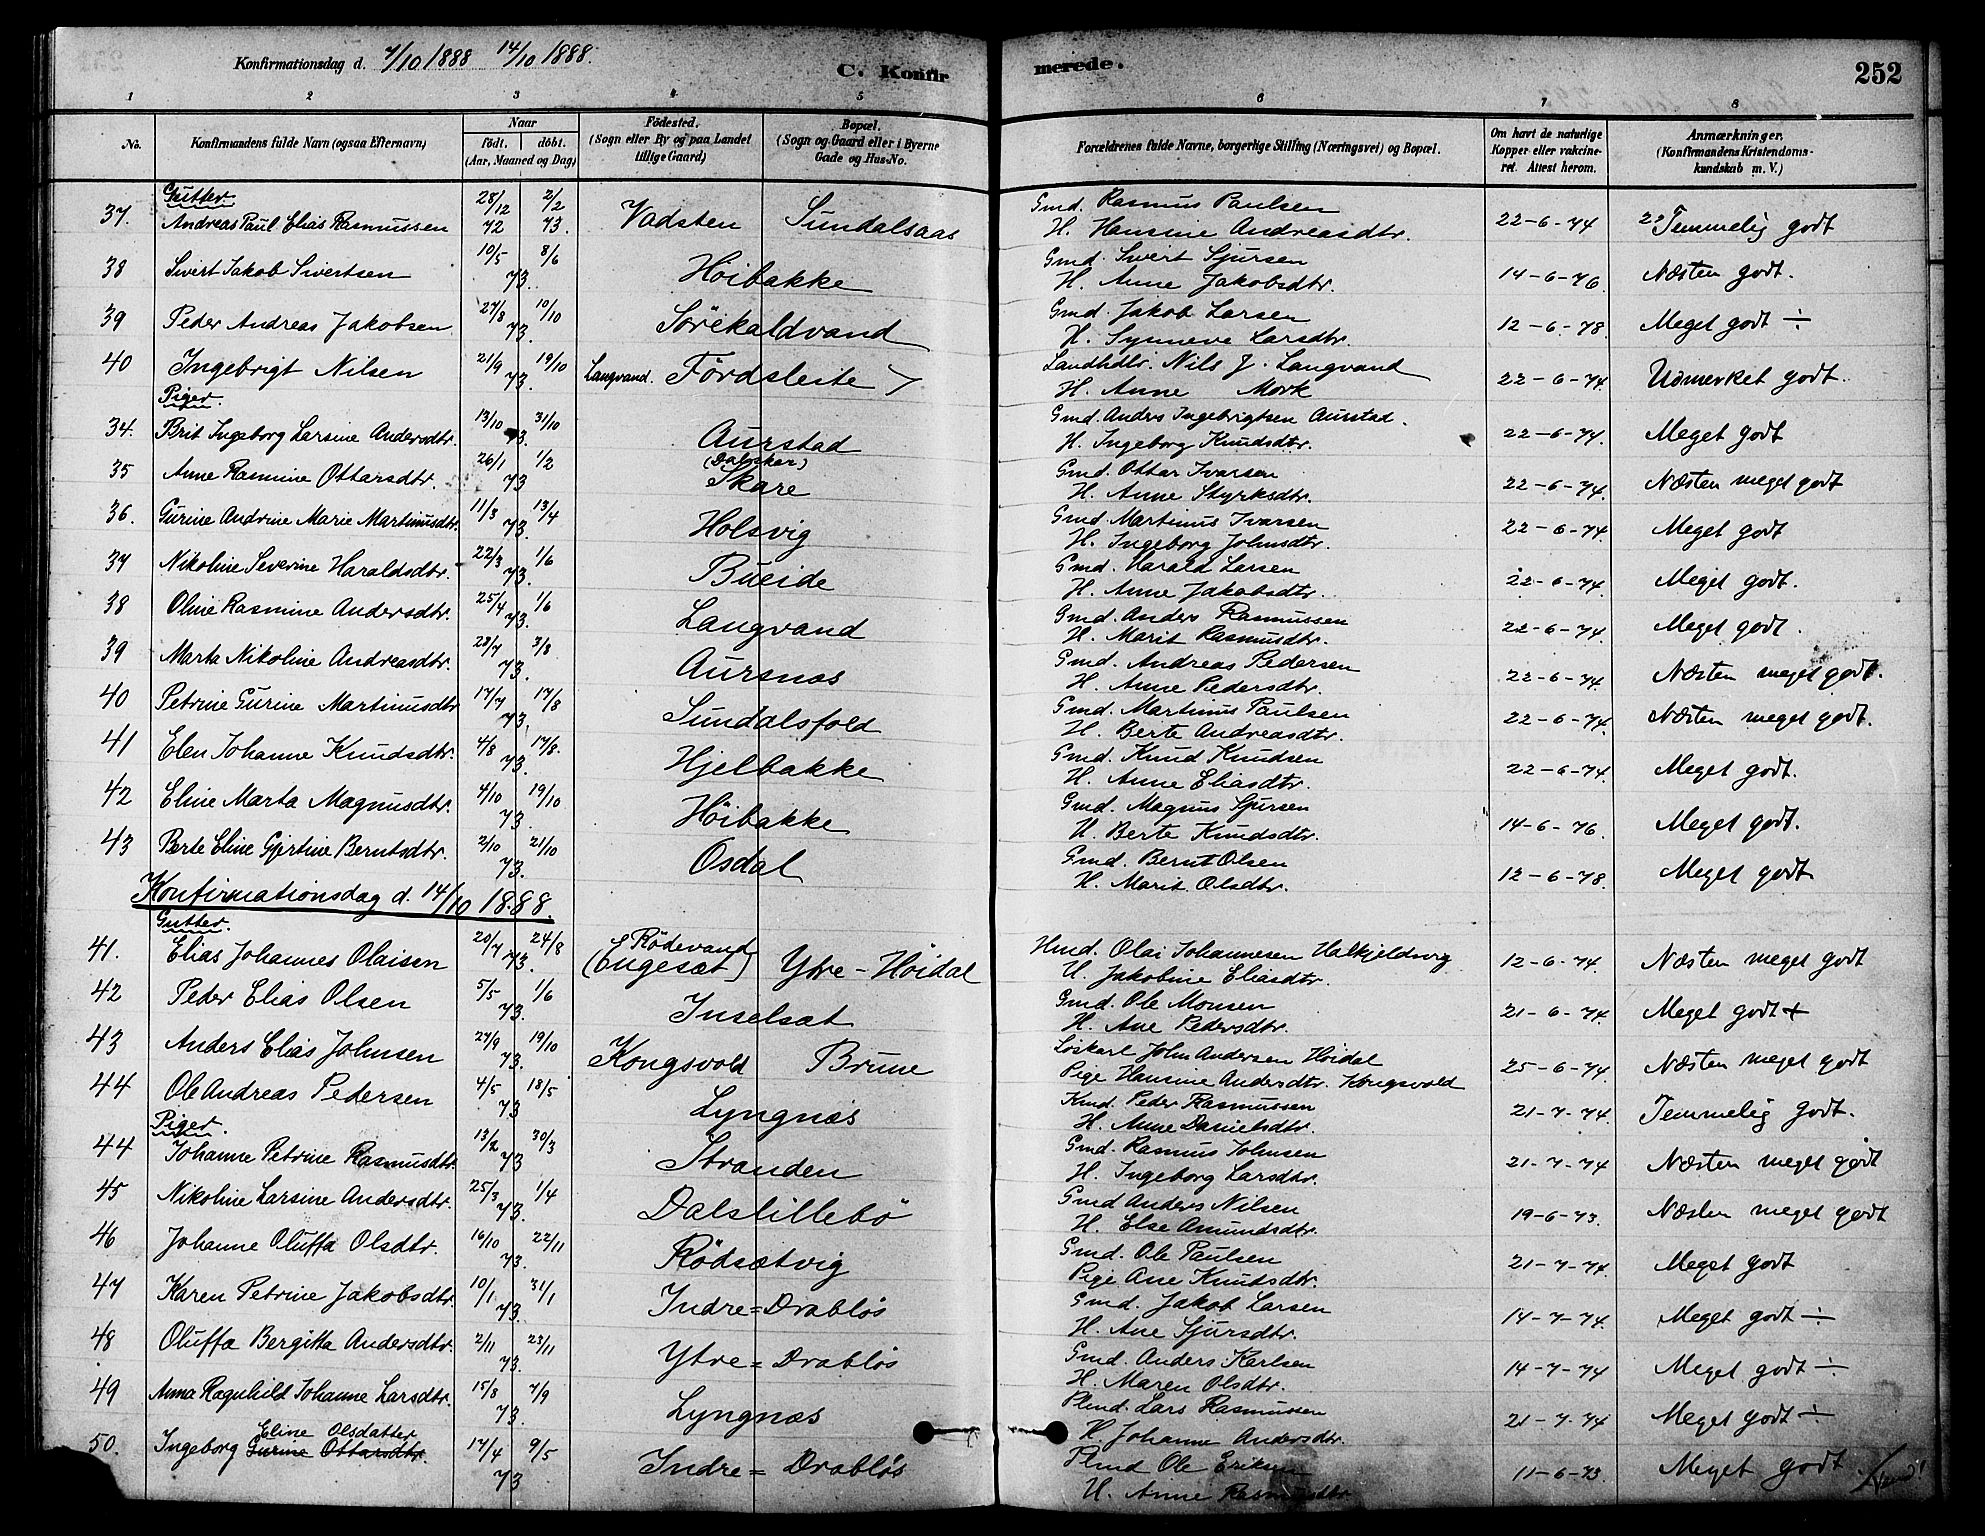 Konfirmationsdag d. 7/10 1888 14/10 1888.
C. Konfirmerede.
252
1 2 3 4 5 6 7 8
No. Konfirmandens fulde Navn (ogsaa Efternavn) Naar födt. döbt. (Aar, Maaned og Dag) Födested. (Sogn eller By og paa Landet tillige Gaard) Bopæl. (Sogn og Gaard eller i Byerne Gade og Hus-No. Forældrenes fulde Navne, borgerlige Stilling (Næringsvei) og Bopæl. Om havt de naturlige Kopper eller vakcineret. Attest herom. Anmærkninger. (Konfirmandens Kristendomskundskab m. V.)
Gutter
37. Andreas Paul Elias Rasmussen 28/12 72 2/2 73. Vadsten Sundalsaas Gmd. Rasmus Paulsen H. Hansine Andreasdtr. 22-6-74 Temmelig godt
38 Sivert Jakob Sivertsen 10/5 8/6 73. Höibakke Gmd. Sivert Sjursen H. Anne Jakobsdtr. 14-6-76 Næsten godt.
39 Peder Andreas Jakobsen 27/8 19/10 73. Sörekaldvand Gmd. Jakob Larsen H. Synneve Larsdtr. 12-6-78. Meget godt ÷
40 Ingebrigt Nilsen 21/9 19/10 73. Langvand. Fördsleite Landhdlr. Nils J. Langvand H. Anne Mork 22-6-74. Udmerket godt.
Piger.
34. Brit Ingeborg Larsine Andersdtr. 13/10 31/10 73. Aurstad Gmd. Anders Ingebrigtsen Aurstad. H. Ingeborg Knudsdtr. 22-6-74. Meget godt
35 Anne Rasmine Ottarsdtr. 26/1 1/2 73 Skare Gmd. Ottar Ivarsen H. Anne Styrksdtr. 22-6-74. Næsten meget godt
36. Gurine Andrine Marie Martinusdtr. 11/3 13/4 73. Holsvig Gmd. Martinus Ivarsen H. Ingeborg Johnsdtr. 22-6-74. Meget godt
37 Nikoline Severine Haraldsdtr. 22/3 1/6 73. Bueide Gmd. Harald Larsen H. Anne Jakobsdtr. 22-6-74. Meget godt.
38 Oline Rasmine Andersdtr. 25/4 1/6 73. Langvand Gmd. Anders Rasmussen H. Marit Rasmusdtr. 22-6-74. Meget godt.
39 Marta Nikoline Andreasdtr. 28/7 3/8 73. Aursnæs Gmd. Andreas Pedersen H. Anne Pedersdtr. 22-6-74. Næsten meget godt.
40 Petrine Gurine Martinusdtr 17/7 17/8 73. Sundalsfold Gmd. Martinus Paulsen H. Berte Andreasdtr. 22-6-74. Næsten meget godt.
41 Elen Johanne Knudsdtr. 4/8 17/8. 73. Hjelbakke Gmd. Knud Knudsen H. Anne Eliasdtr. 22-6-74. Meget godt.
42 Eline Marta Magnusdtr. 4/10 19/10 73. Höibakke Gmd. Magnus Sjursen H. Berte Knudsdtr. 14-6-76. Meget godt.
43 Berte Eline Gjertine Berntsdtr. 2/10 21/10 73. Osdal Gmd. Bernt Olsen H. Marit Olsdtr. 12-6-78. Meget godt
Konfirmationsdag d. 14/10 1888.
Gutter.
41. Elias Johannes Olaisen 20/7 24/8 73. Rödevand (Engesæt) Ytre-Höidal Hmd. Olai Johannesen Halkjeldsvig H. Jakobine Eliasdtr. 12-6-74. Næsten meget godt
42 Peder Elias Olsen 5/5 1/6 73. Inselsæt Gmd. Ole Monsen H. Ane Pedersdtr. 21-6-74. Meget godt +
43 Anders Elias Johnsen 27/9 19/10 73. Kongsvold Brune Löskarl John Andersen Höidal Pige Hansine Andersdtr. Kongsvold 25-6-74 Næsten meget godt
44 Ole Andreas Pedersen 4/5 18/5 73 Lyngnæs Kmd. Peder Rasmussen H. Anne Danielsdtr. 21-7-74. Temmelig godt.
Piger.
44 Johanne Petrine Rasmusdtr. 13/2 30/3 73 Stranden Gmd. Rasmus Johnsen H. Ingeborg Larsdtr. 21-7-74 Næsten meget godt
45 Nikoline Larsine Andersdtr. 25/3 1/4 73. Dalslillebö Gmd Anders Nilsen H. Else Amundsdtr. 19-6-73. Næsten meget godt
46 Johanne Oluffa Olsdtr. 16/10 22/11 73. Rödsætvig Gmd. Ole Paulsen Pige Ane Knudsdtr. 21-7-74. Meget godt
47 Karen Petrine Jakobsdtr. 10/1 31/1 73. Indre=Drablös Gmd. Jakob Larsen H. Ane Sjursdtr. 14-7-74. Meget godt ÷
48 Oluffa Bergitta Andersdtr. 2/11 23/11 73. Ytre=Drablös Gmd. Anders Karlsen H. Maren Olsdtr. 14-7-74 Meget godt ÷
49 Anna Ragnhild Johanne Larsdtr. 15/8 7/9 73. Lyngnæs Plmd. Lars Rasmussen H. Johanne Andersdtr. 21-7-74 Meget godt ÷
50. Ingeborg Gurine Ottarsdtr. Eline Olsdatter 17/4 9/5 73 Indre=Drablös Plmd Ole Eriksen H. Anne Rasmusdtr 11-6-73. Meget godt